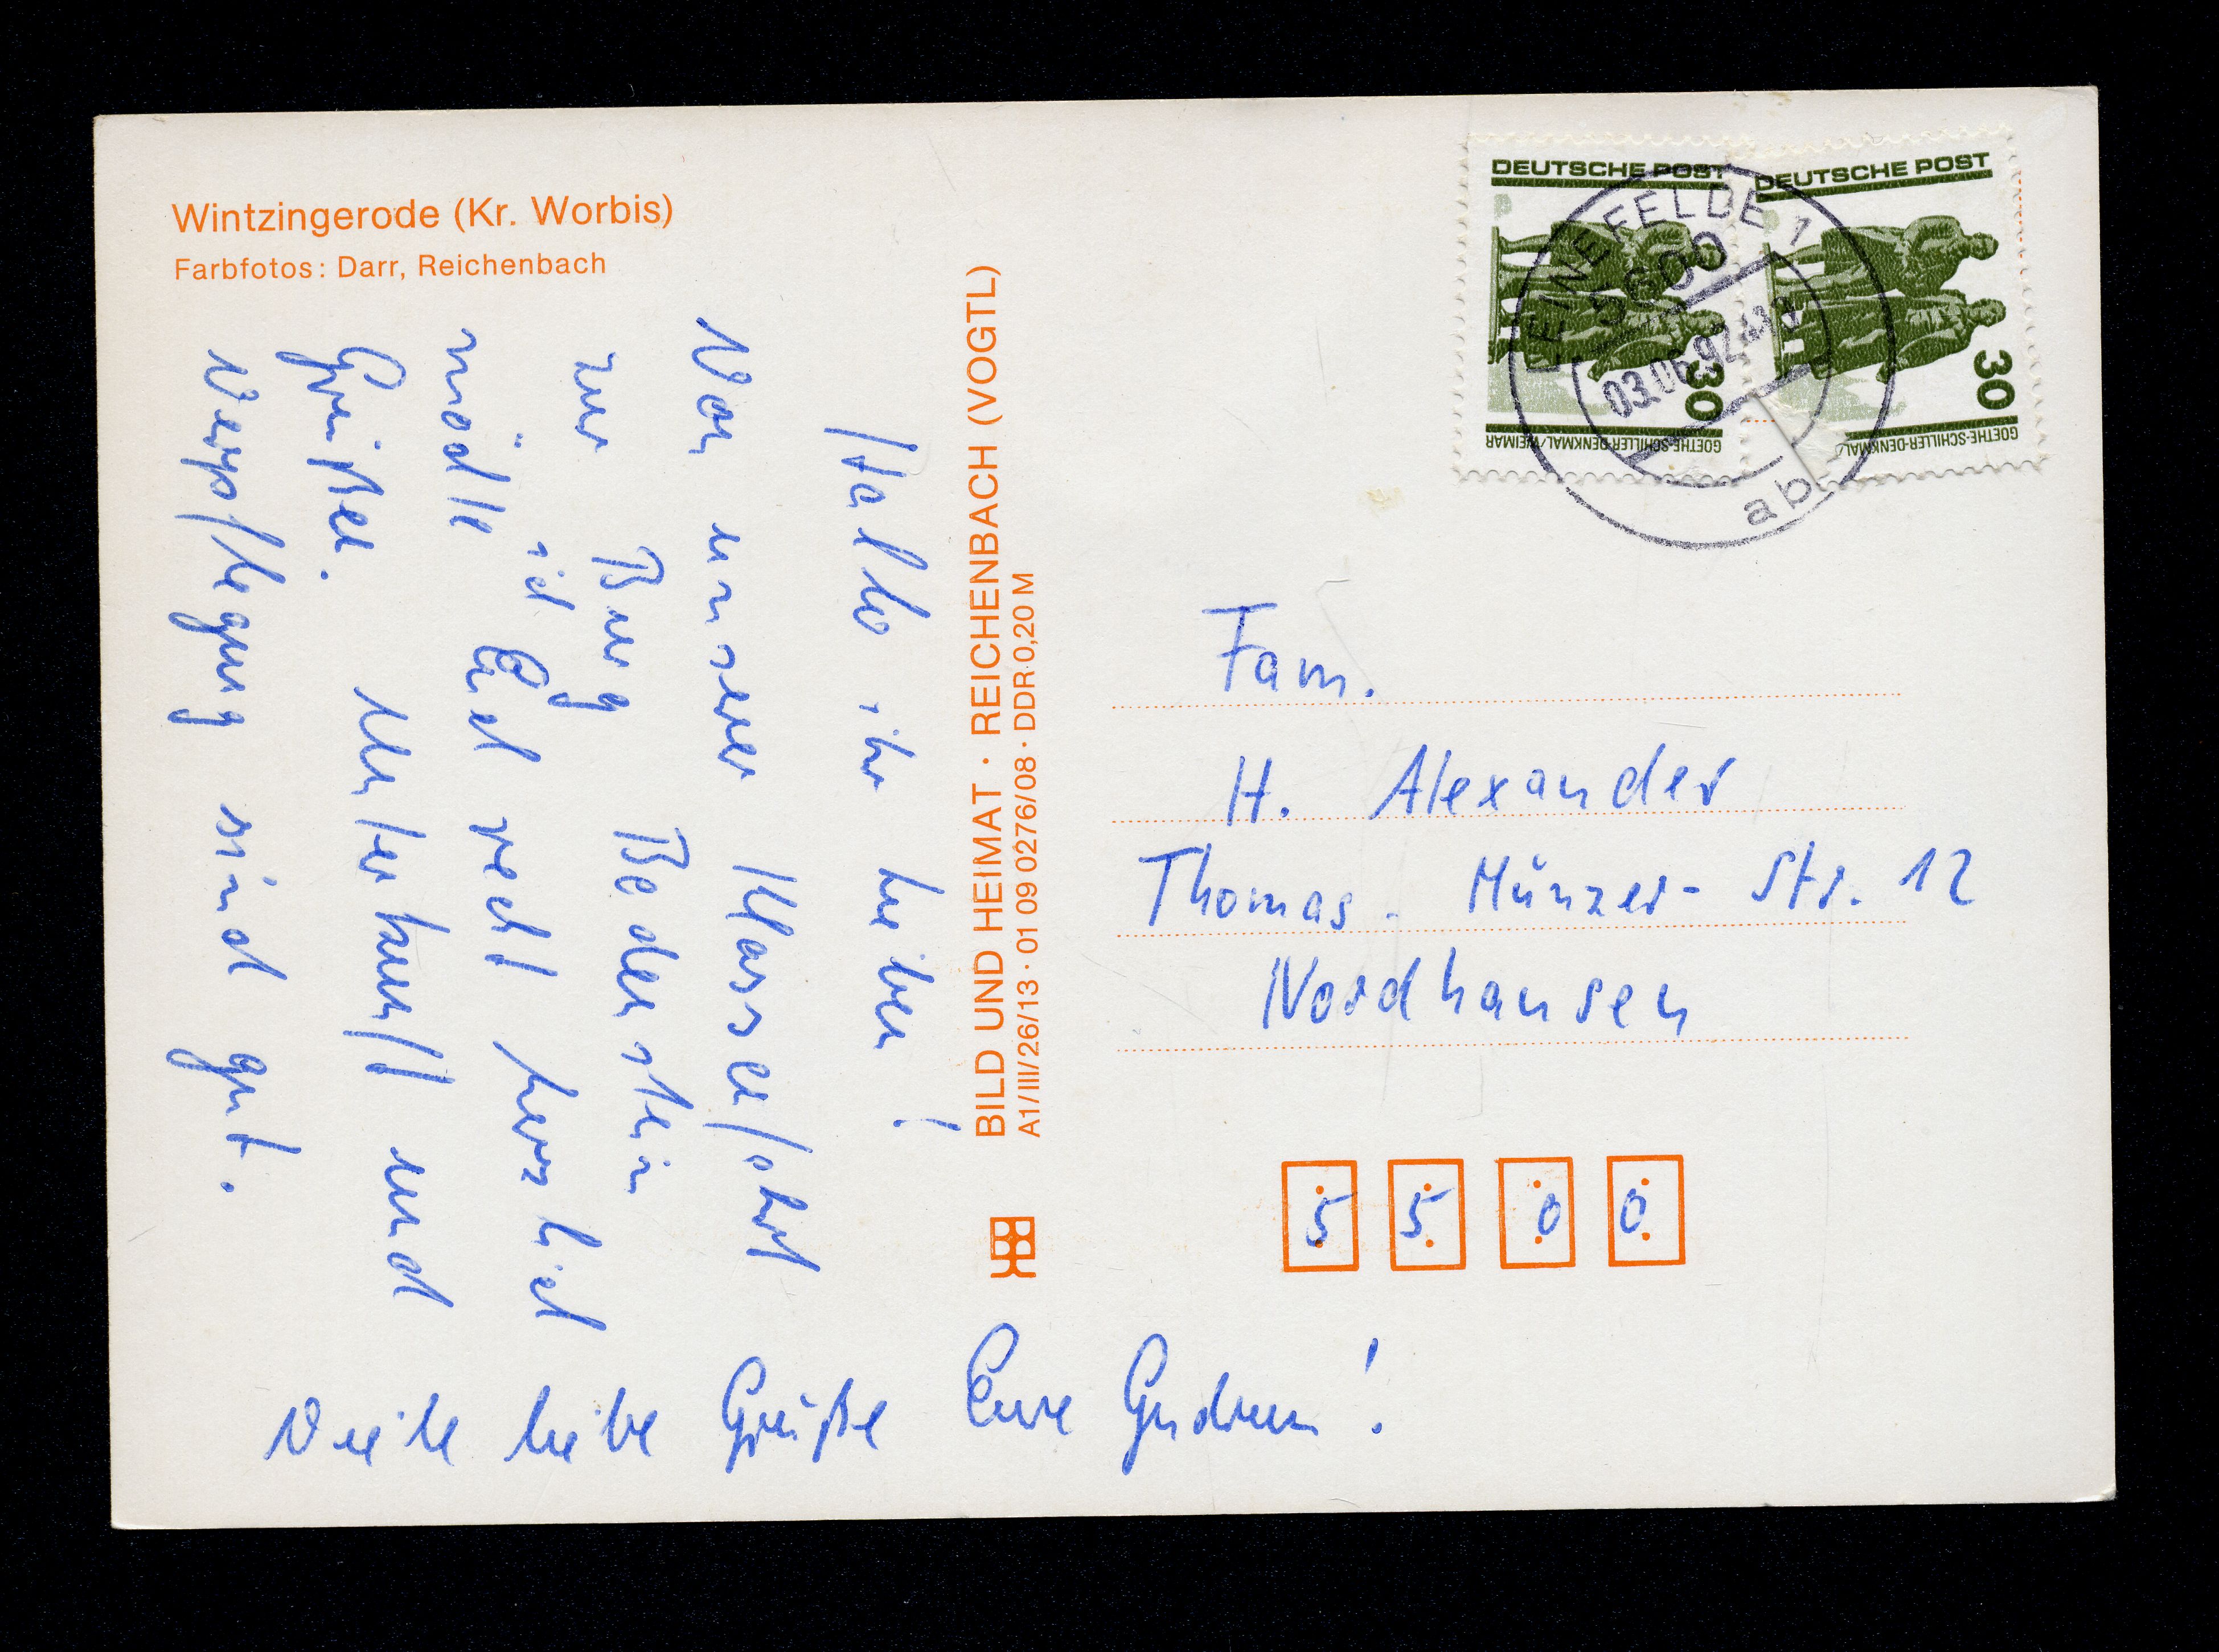 Wintzingerode (Kr. Worbis)
Farbfotos: Darr, Reichenbach
Hallo ihr lieben!
Von unserer Klassenfahrt
zur Burg Bodenstein
möchte ich Euch recht herzlich
Grüßen. Unterkunft und
Verpflegung sind gut.
Viele liebe Grüße Eure Gudrun!
BILD UND HEIMAT · REICHENBACH (VOGTL)
A1/III/26/13 · 01 09 0276/08 · DDR 0,20 M
DEUTSCHE POST
30
GOETHE-SCHILLER-DENKMAL/WEIMAR
DEUTSCHE POST
30
GOETHE-SCHILLER-DENKMAL/
LEINEFELDE 1
5600
ab
Fam.
H. Alexander
Thomas-Münzer-Str. 12
Nordhausen
5 5 0 0